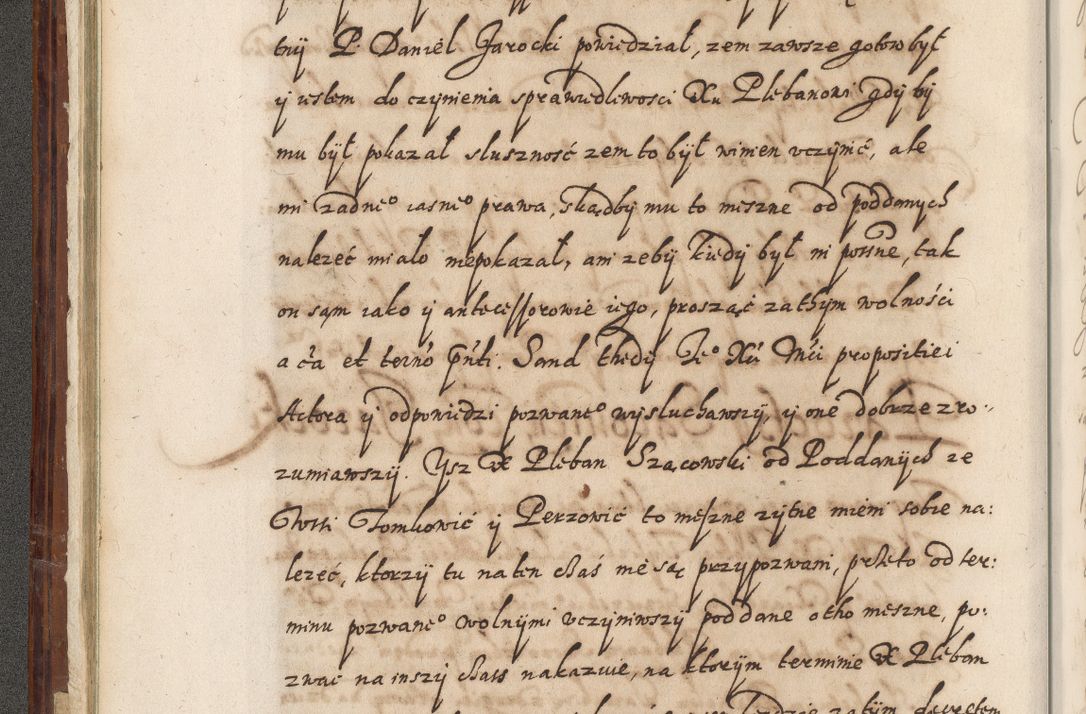 tnÿ P. Daniel Jarocki powiedział, zem zawsze gotow bÿł
ÿ iestem do czÿnienia sprawiedliwosci Xu Plebanowi gdÿ bÿ
mu bÿł pokazał slusznosć zem to bÿł winien vczÿnić, ale
mi zadneº iasneº prawa, skądbÿ mu to meszne od poddanÿch
nalezeć miało niepokazał, ani zebÿ kiedÿ bÿł in posśne, tak
on sąm iako ÿ antecessorowie iego, prosząc zathÿm wolności
a ca et ternô pńti. Sand thedÿ Jeº Xci Mći propositiei
Actora ÿ odpowiedzi pozwaneº wÿsluchawszÿ, ÿ one dobrze zro:
zumiawszÿ. Ysz X Pleban Szącowski od Poddanÿch ze
Wsi Tomkowić ÿ Perzowić to meszne zÿtne mieni sobie na:
lezeć, ktorzÿ tu na ten cżaś nie są przÿpozwani, przeto od ter:
minu pozwaneº wolnÿmi vczÿniwszÿ poddane otho meszne, po:
zwać na inszÿ cżass nakazuie, na ktorÿm terminie X Pleban
zatÿm decretem